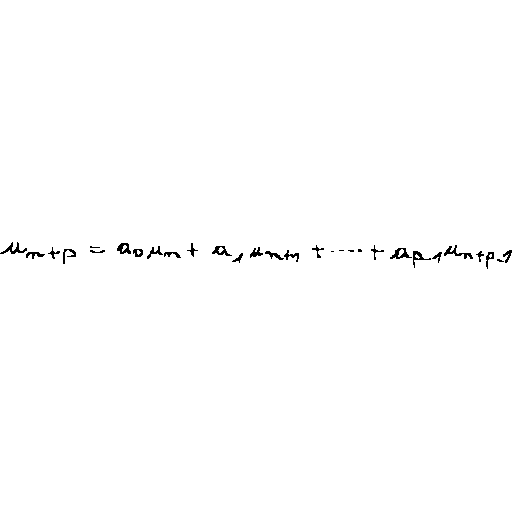 u_{n+p} = a_0 u_n + a_1 u_{n+1} + ..... + a_{p-1} u_{n+p-1}